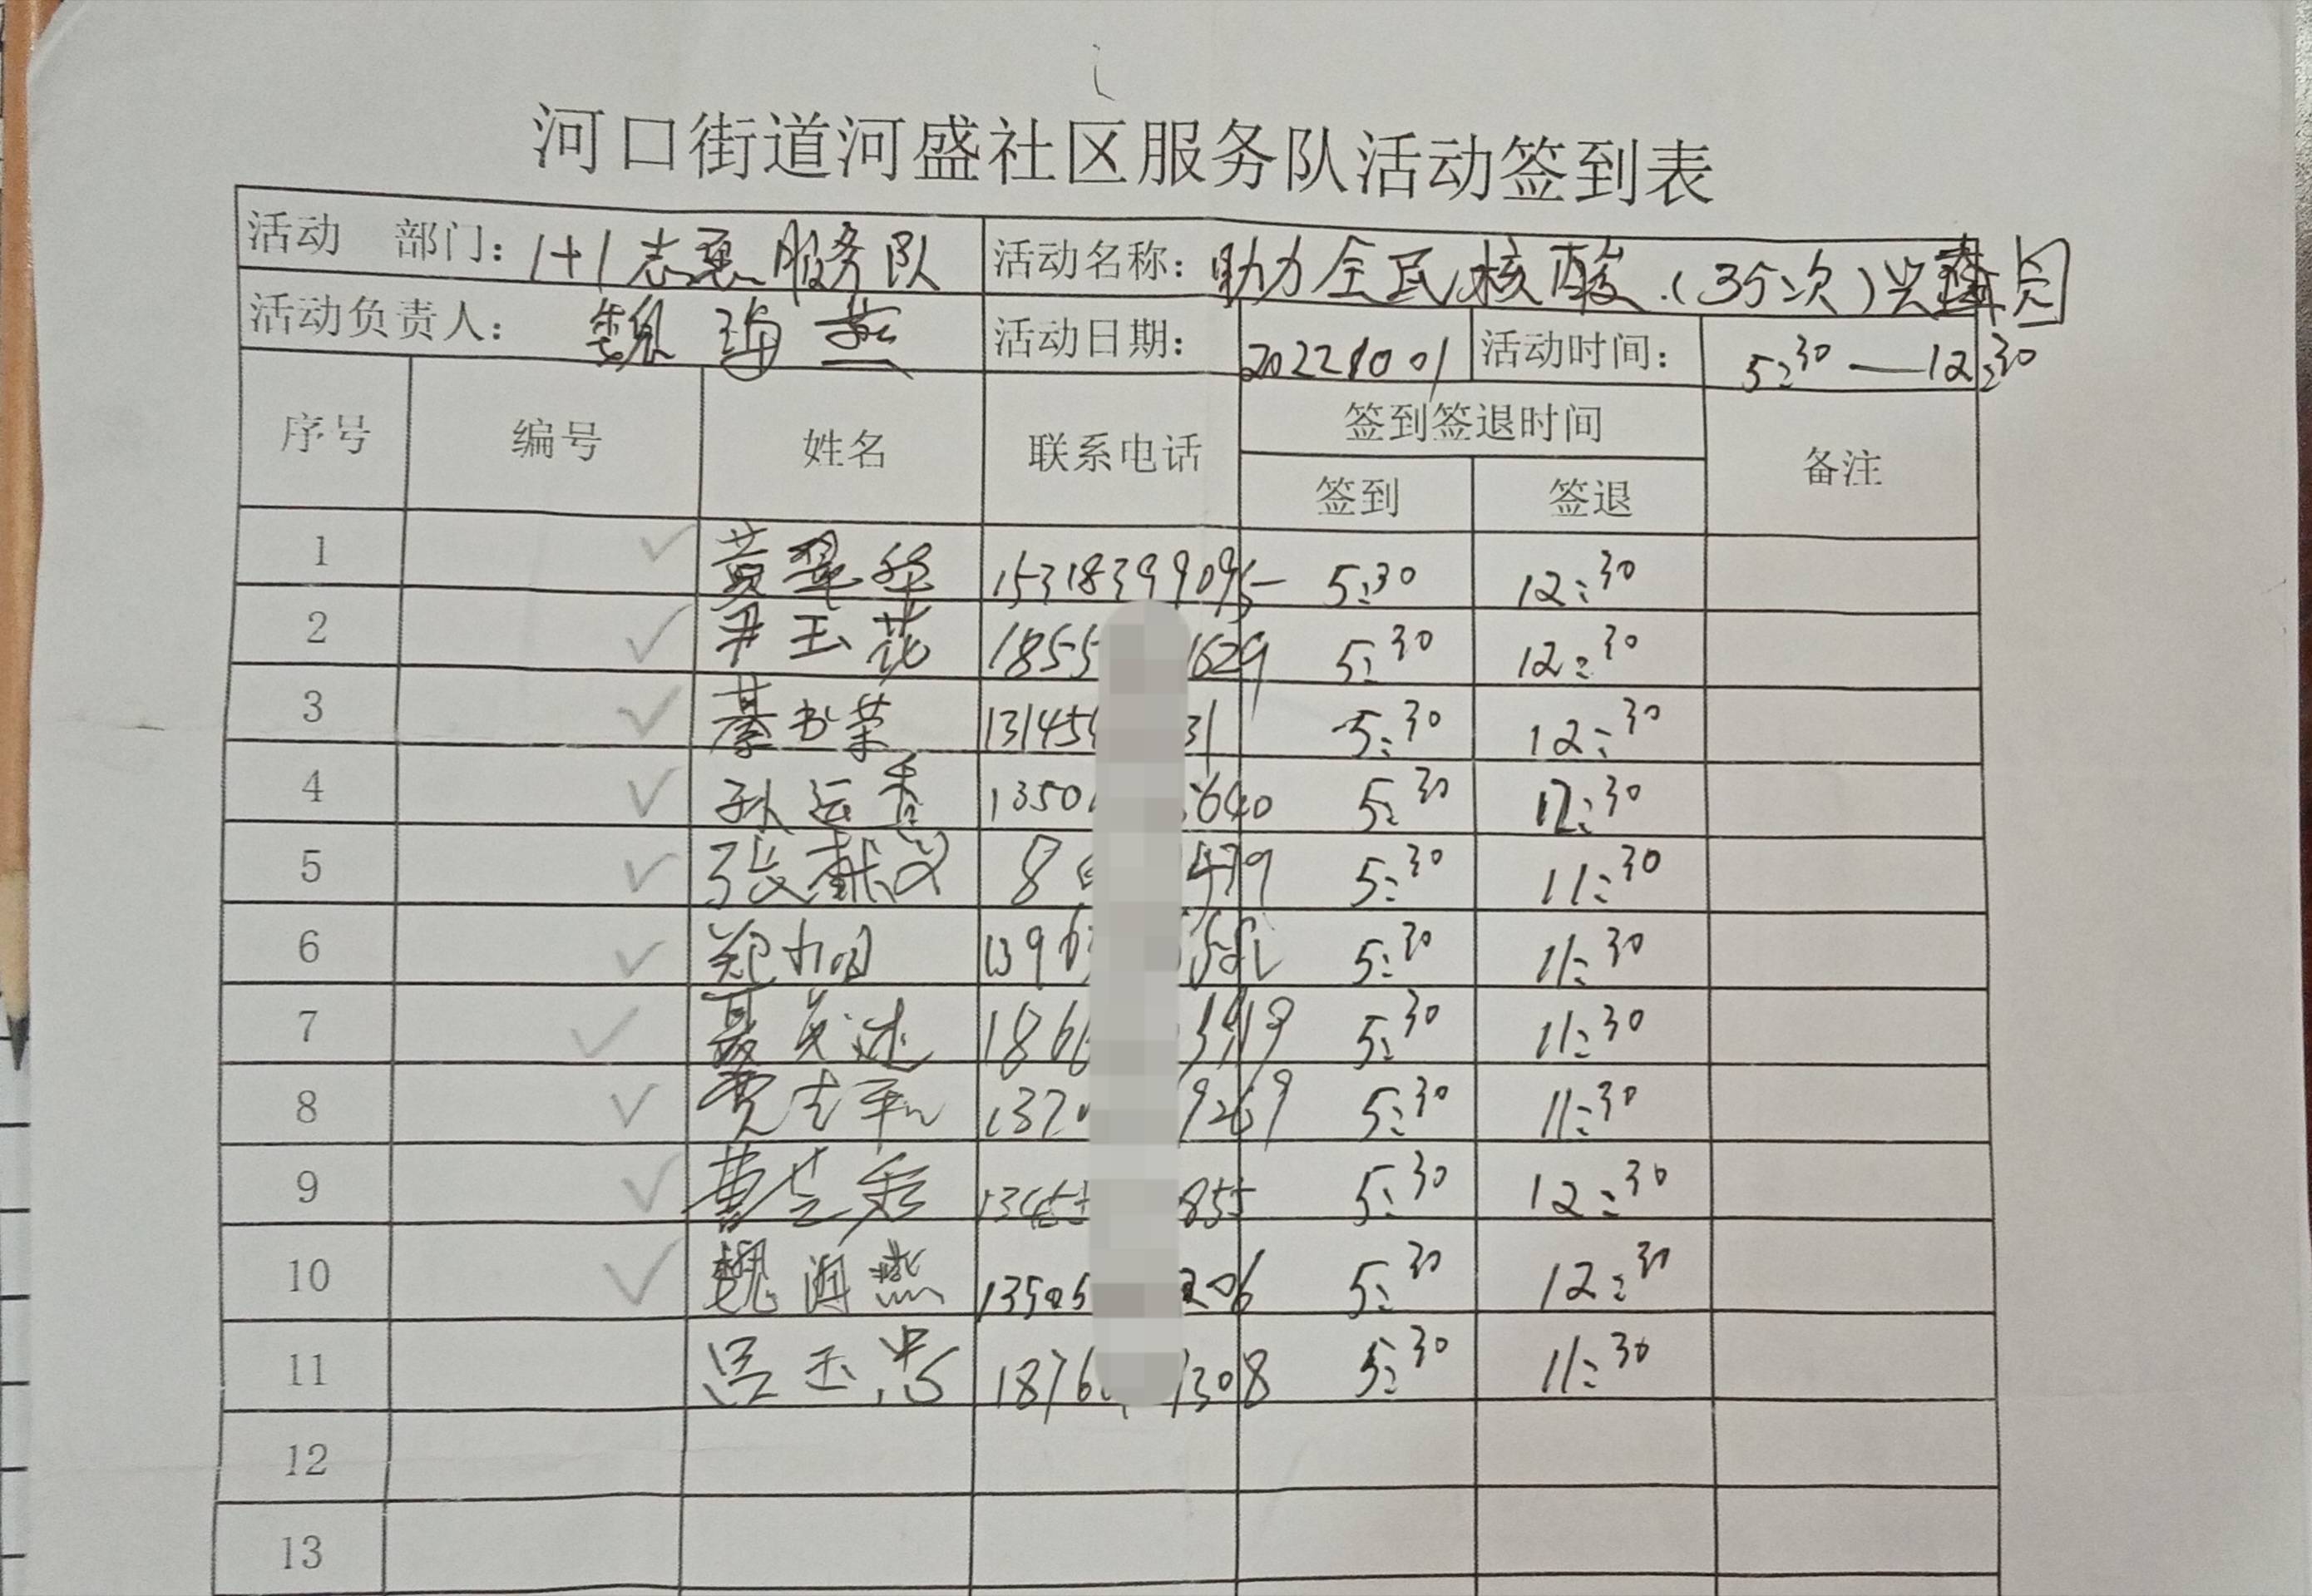 河口街道河盛社区服务队活动签到表
活动 部门: 1+1志愿服务队 活动名称: 助力全民核酸.(35次)兴
活动负责人: 魏海燕 活动日期: 20221001 活动时间: 5:30—12:30
序号 编号 姓名 联系电话 签到签退时间 备注
签到 签退
1 黄翠华 15318399095 5:30 12:30
2 尹玉花 1855 1629 5:30 12:30
3 綦书荣 13145 31 5:30 12:30
4 孙运香 1350 640 5:30 12:30
5 张献义 8 479 5:30 11:30
6 郑 1396 5:30 11:30
7 聂 述 186 5:30 11:30
8 贾志和 137 9269 5:30 11:30
9 曹 秀 855 5:30 12:30
10 魏海燕 13505 206 5:30 12:30
11 吕玉忠 1876 1308 5:30 11:30
12
13